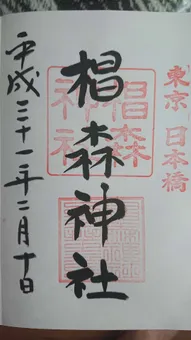 東京 日本橋
椙森神社
椙森神社
平成三十一年二月十日